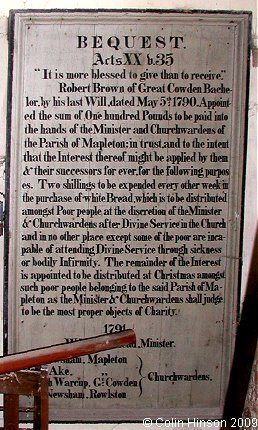 BEQUEST.
Acts XX v.35
"It is more blessed to give than to receive."
Robert Brown of Great Cowden Bache-
lor, by his last Will, dated May 5th. 1790. Appoint-
ed the sum of One hundred Pounds to be paid into
the hands of the Minister and Churchwardens of
the Parish of Mapleton; in trust, and to the intent
that the Interest thereof might be applied by them
& their successors for ever, for the following purpos
es. Two shillings to be expended every other week in
the purchase of white Bread, which is to be distributed
amongst Poor people, at the discretion of the Minister
& Churchwardens after Divine Service in the Church
and in no other place except some of the poor are inca-
pable of attending Divine Service through sickness
or bodily Infirmity. The remainder of the Interest
is appointed to be distributed at Christmas amongst
such poor people belonging to the said Parish of Ma-
pleton as the Minister & Churchwardens shall judge
to be the most proper objects of Charity.
1791
Minister.
Mapleton
Ake.
Warcup, Gt. Cowden
Newsham, Rowlston
Churchwardens.
© Colin Hinson 2009